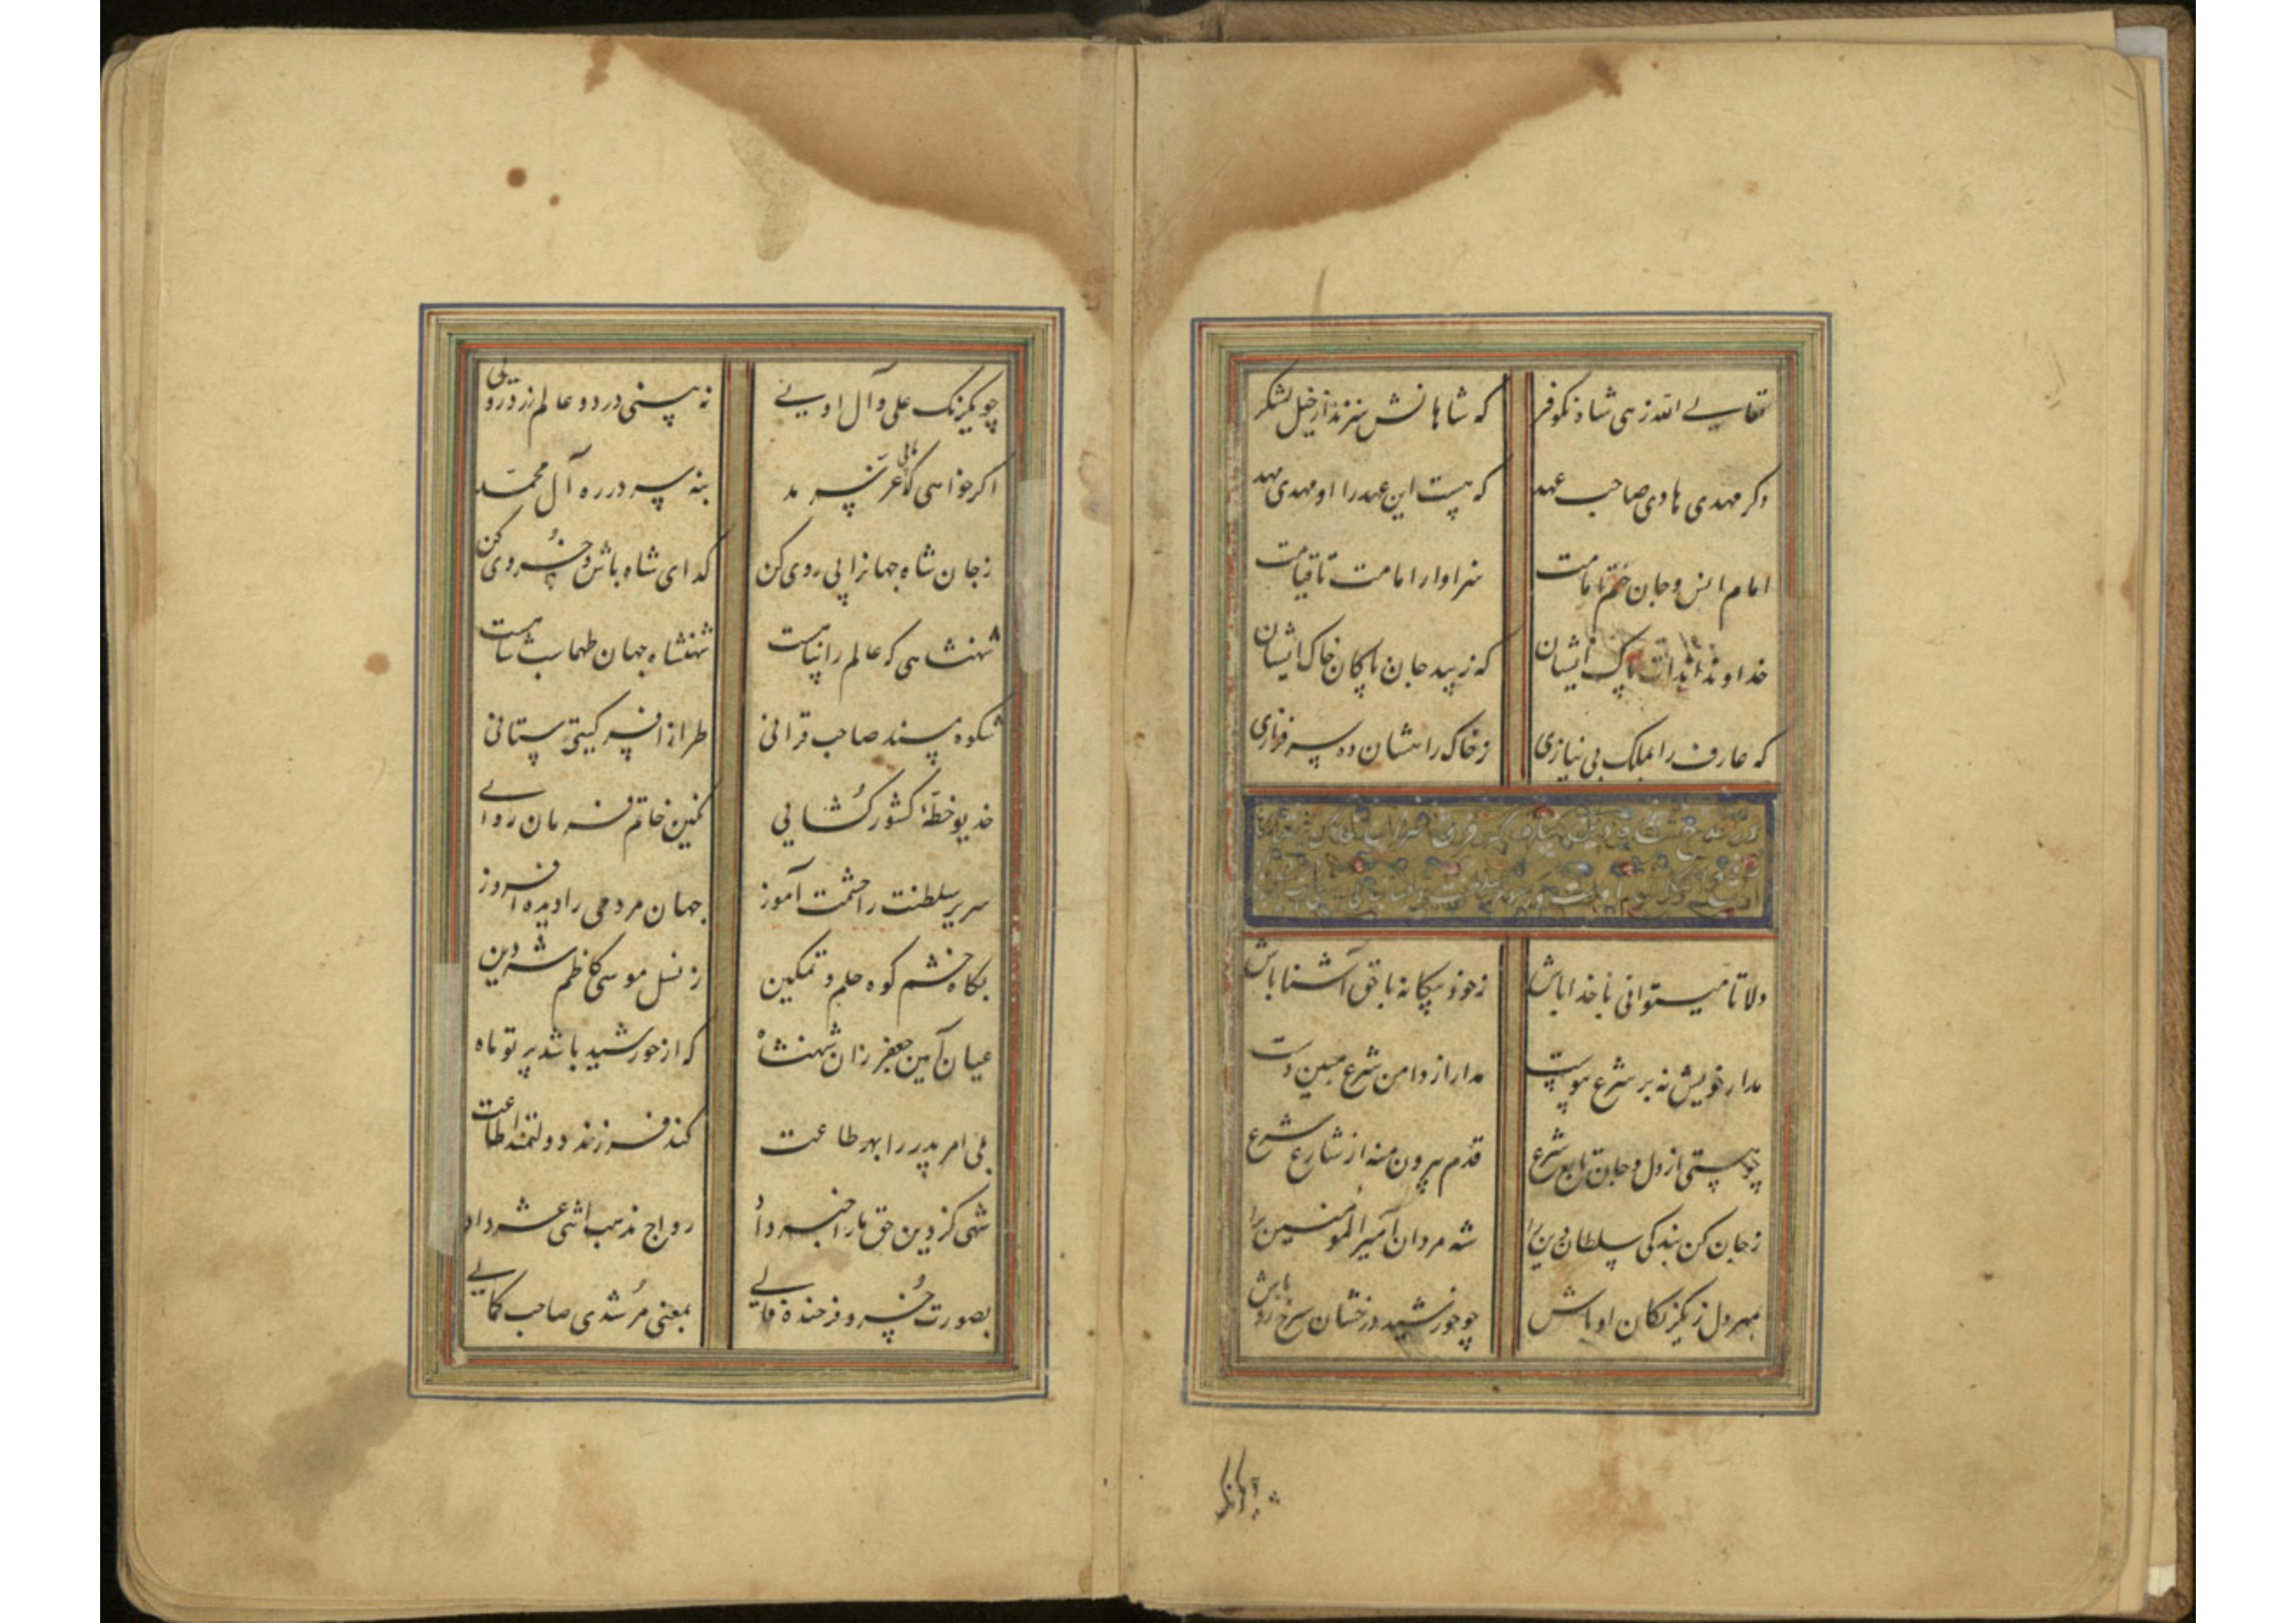 تعالی الله زهی شاه نکوفر که شاهانش سزند از خیل لشکر
دکر مهدی هادی صاحب عهد که هست این عهد را او مهدی مهد
امام انس و جان ختم امامت سزاوار امامت تا قیامت
خداوندا بذات پاک ایشان که زیبد جان پاکان خاک ایشان
که عارف را بملک بی نیازی ز خاک راهشان ده سرفرازی
در مدح شاه
دلا تا میتوانی با خدا باش ز خود بیکانه با حق آشنا باش
مدار خویش نه بر شرع پیوست مدار از دامن شرع مبین دست
چو هستی از دل و جان تابع شرع قدم بیرون منه از شارع شرع
ز جان کن بندکی سلطان دین را شه مردان امیر المومنین را
بمهر دل ز یکرنکان او باش چو خورشید درخشان سرخ رو باش
چو یکرنک
چو یکرنک علی و آل اویی نه بینی در دو عالم زرد رویی
اکر خواهی که یابی عز سرمد بنه سر در ره آل محمد
ز جان شاه جهانرا پی روی کن کدای شاه باش و خسروی کن
شهنشاهی که عالم را پناهست شهنشاه جهان طهماسب شاهست
شکوه مسند صاحب قرانی طراز افسر کیتی ستانی
خدیو خطهٔ کشور کشایی نکین خاتم فرمان روایی
سریر سلطنت را حشمت آموز جهان مردمی را دیده افروز
بکاه خشم کوه حلم و تمکین ز نسل موسی کاظم شه دین
عیان آیین جعفر زان شهنشاه که از خورشید باشد پرتو ماه
بلی امر پدر را بهر طاعت کند فرزند دولتمند اطاعت
شهی کز دین حق ما را خبر داد رواج مذهب اثنی عشر داد
بصورت خسرو فرخنده فالی بمعنی مرشدی صاحب کمالی